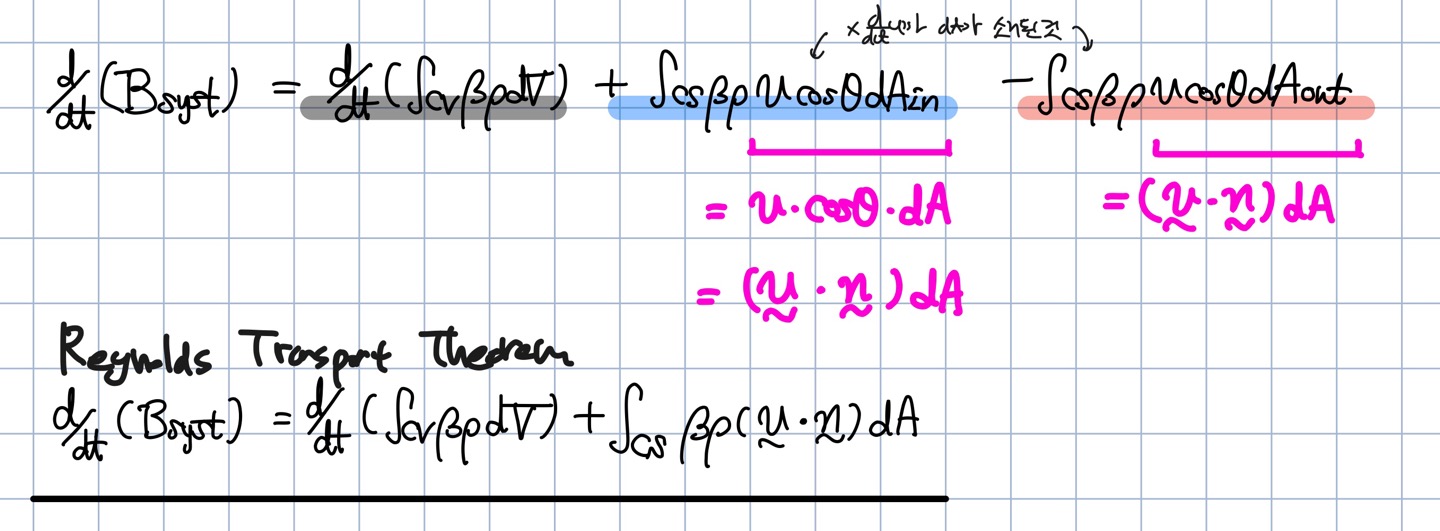 × d/dt 에서 dA가 소거된것
d/dt (Bsyst) = d/dt (∫cv βρd∀) + ∫cs βρ u cosθ dAin − ∫cs βρ u cosθ dAout
= u·cosθ·dA = (u·n) dA
= (u·n) dA
Reynolds Transport Theorem
d/dt (Bsyst) = d/dt (∫cv βρd∀) + ∫cs βρ(u·n) dA